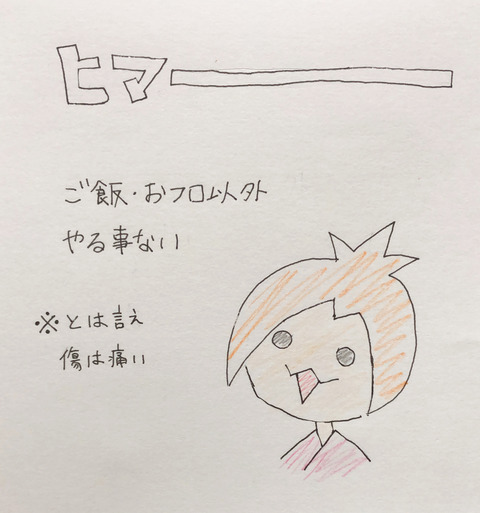 ヒマー
ご飯・おフロ以外
やる事ない
※とは言え
傷は痛い